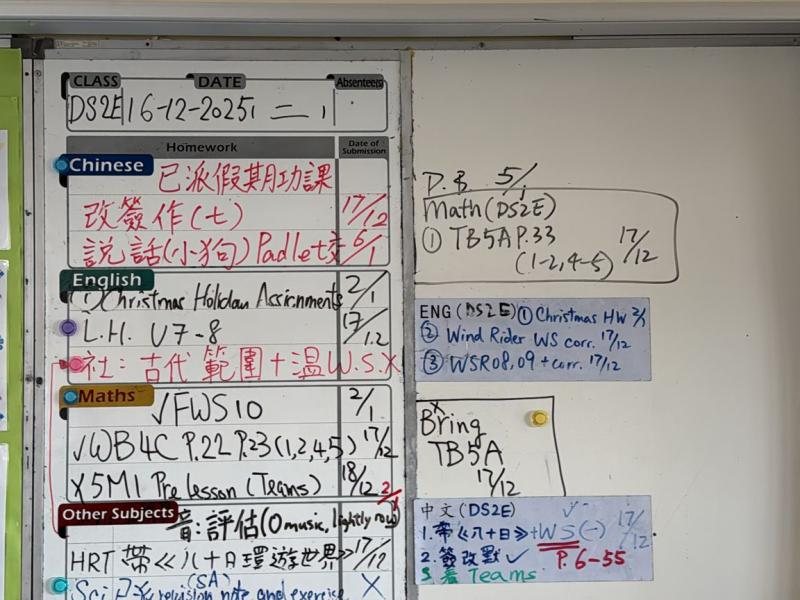 CLASS DATE Absentees
DS2E 16-12-2025 二 1
Homework Date of Submission
Chinese 已派假期功課
改簽作(七) 17/12
說話(小狗) Padlet交 6/1
English
① Christmas Holiday Assignments 2/1
L.H. U7-8 17/12
社: 古代範圍+溫W.S. X
Maths √FWS10 2/1
√WB4C P.22 P.23(1,2,4,5) 17/12
X 5M1 Pre lesson (Teams) 18/12
2/1
Other Subjects 音:評估(0music, lightly row)
HRT 帶《八十日環遊世界》17/12
(SA)
Sci 已派 revision note and exercise X
P.B 5/1
Math(DS2E)
① TB5A P.33 17/12
(1-2,4-5)
ENG (DS2E) ① Christmas HW 2/1
② Wind Rider WS corr. 17/12
③ WSR08,09 + corr. 17/12
X
Bring
TB5A
17/12
中文(DS2E) √
1.帶《八十日》+WS(一) 17/12
2.簽改默 √ P.6-55
3 看Teams